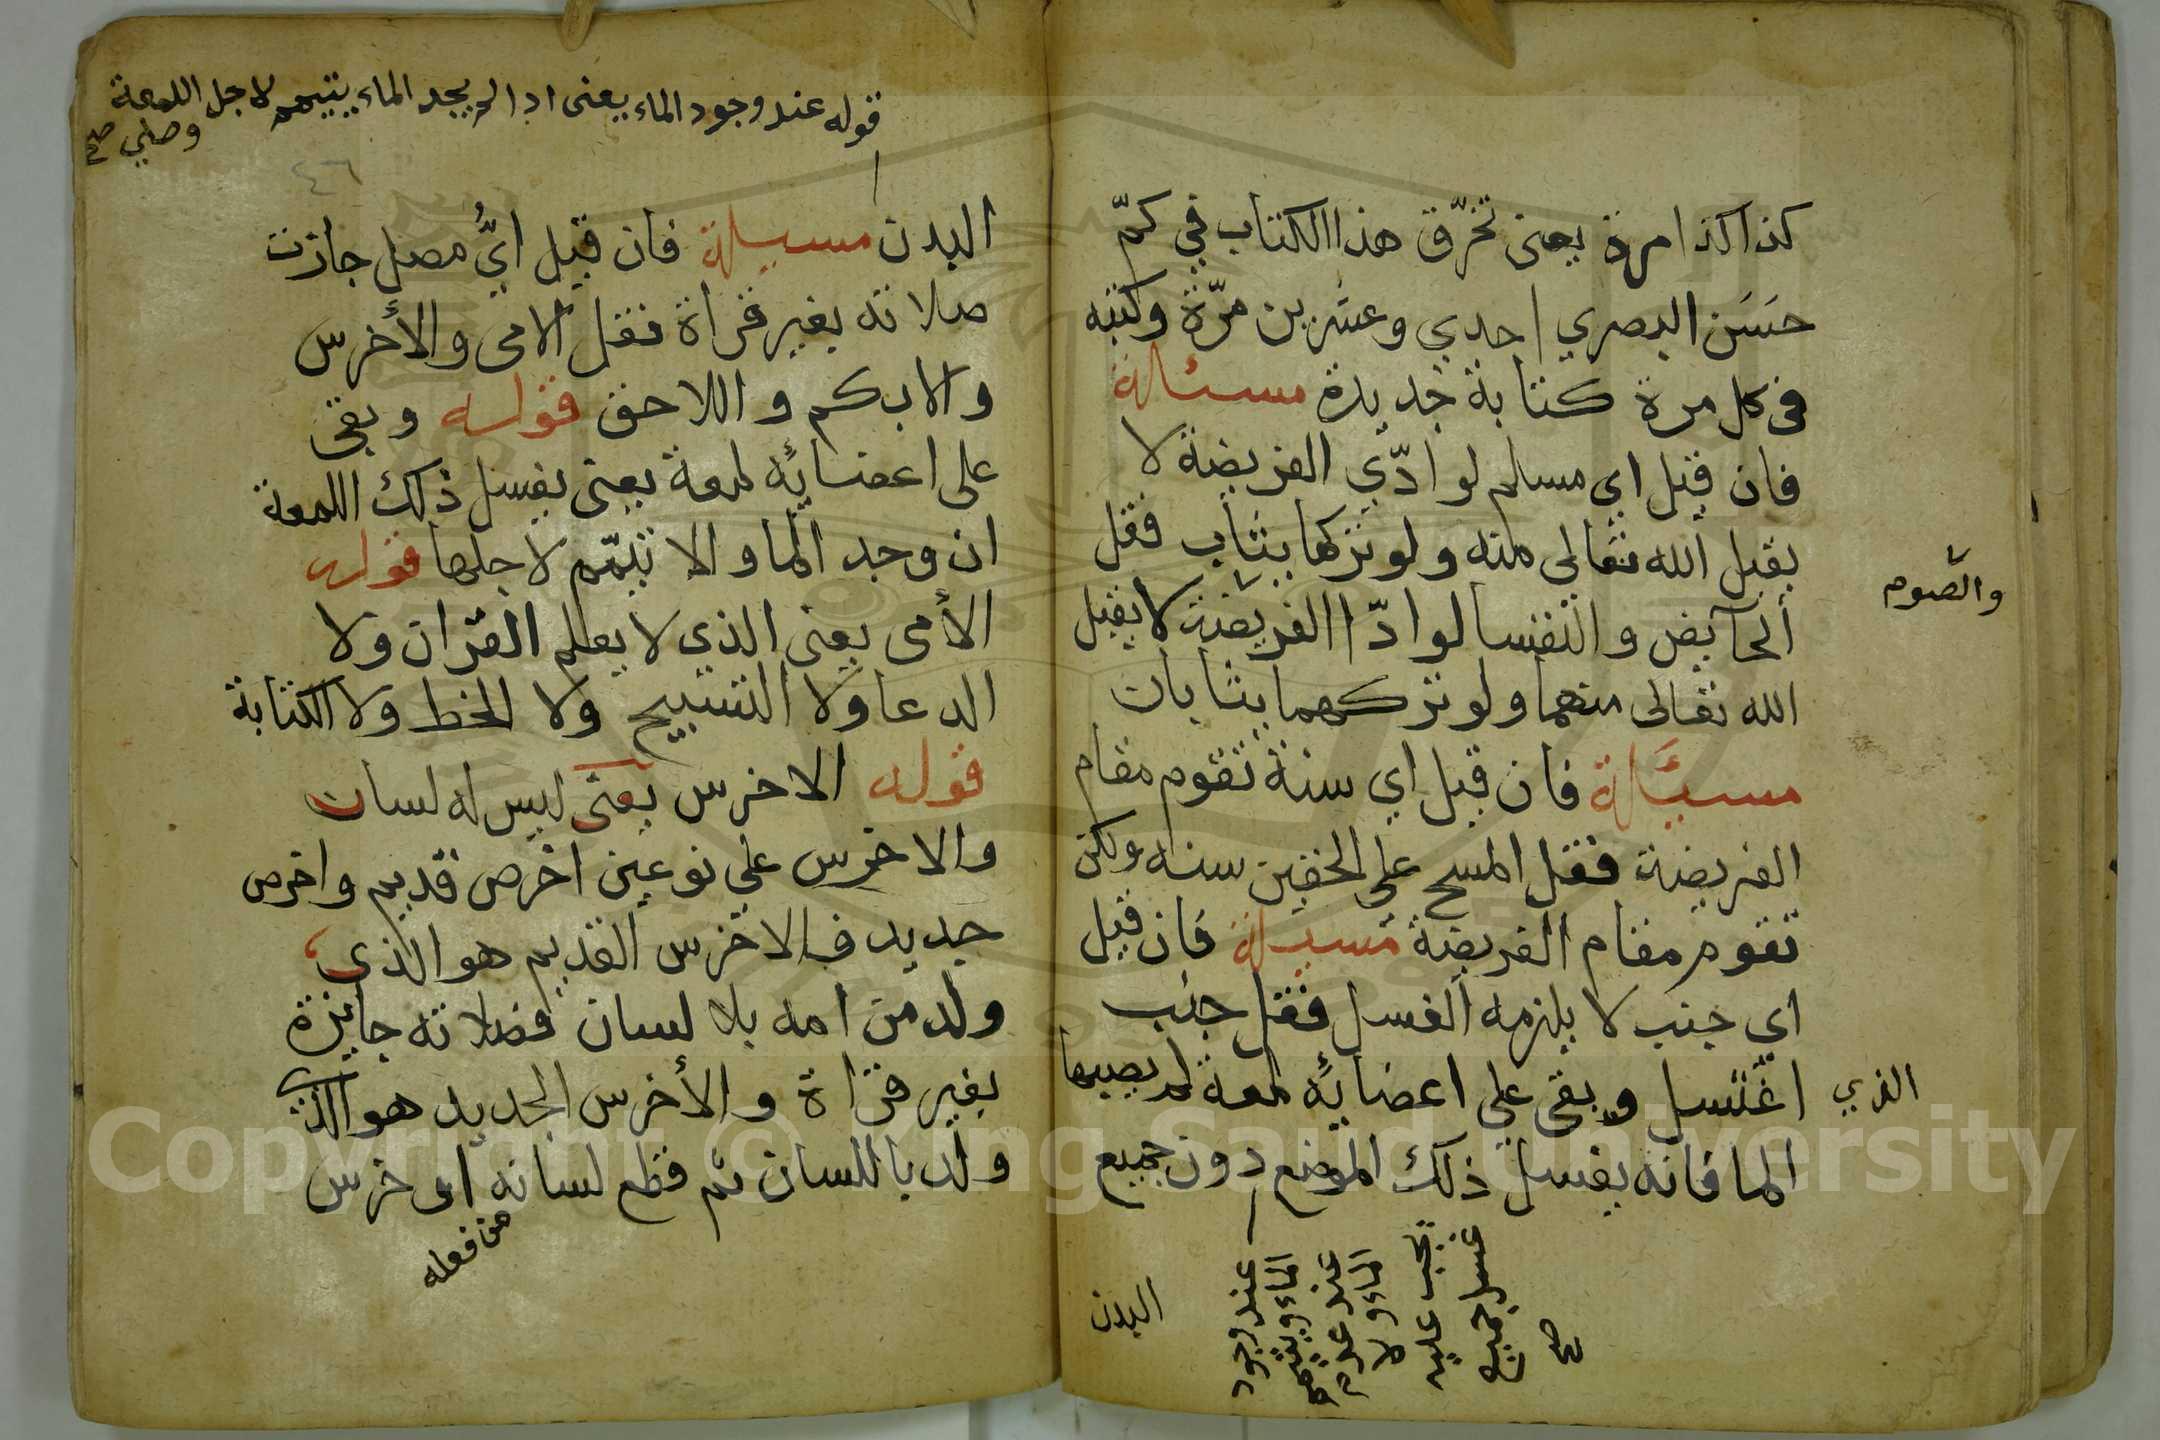 كذا كذا مرة يعني تخرّق هذا الكتاب في كمّ
حسَن البصري احدي وعشرين مرّة وكتبه
في كل مرة كتابة جديدة مسئلة
فان قيل اي مسلم لو ادّي الفريضة لا
يقبل الله تعالي منه ولو تركها يثاب فقل
الحآيض والنفسا لو ادّا الفريضة لا يقبل
والصّوم
الله تعالى منهما ولو تركهما يثابان
مسئلة فان قيل اي سنة تقوم مقام
الفريضة فقل المسح علي الخفين سنه ولكن
تقوم مقام الفريضة مسيلة فان قيل
اي جنب لا يلزمه الغسل فقل جنب
الذي اغتسل وبقي علي اعضائه لمعة لم يصيبها
الما فانه يغسل ذلك الموضع دون جميع
عند وجود
الماء ويتيمم
عند عدم
الماء ولا
يجب عليه
غسل جميع
صح
البدن
قوله عند وجود الماء يعنى اذا لم يجد الماء يتيمم لاجل اللمعة
وصلي صح
٤٦
البدن مسيلة فان قيل ايُّ مصل جازت
صلاته بغير قراة فقل الامى والأخرس
والابكم واللاحق قوله وبقي
على اعضائه لمعة يعني يغسل ذلك اللمعة
ان وجد الما والا تيمّم لاجلها قوله
الأمى يعني الذي لا يعلم القران ولا
الدعا ولا التسبيح ولا الخط ولا الكتابة
قوله الاخرس يعنى ليس له لسان
والاخرس علي نوعين اخرص قديم واخرص
جديد فالاخرس القديم هو الذي
ولد من امه بلا لسان فصلاته جايزة
بغير قراة والأخرس الجديد هو الذي
ولد باللسان ثم قطع لسانه اى خرس
من فعله
Copyright © King Saud University